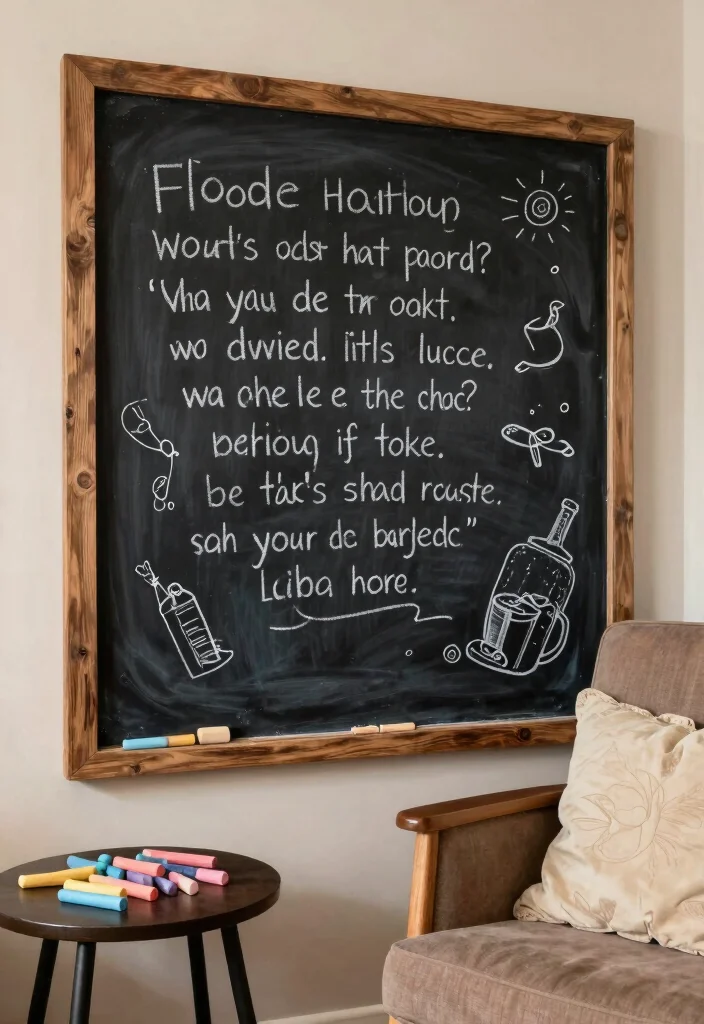 Floode Haithoup
Wourt's odst hat paord?
'Vha yau de tr oakt.
wo dwied. litls lucce.
wa ohe le e the choc?
behioug if toke.
be tak's shad rcuste.
sah your dc barjedc"
Lciba hore.